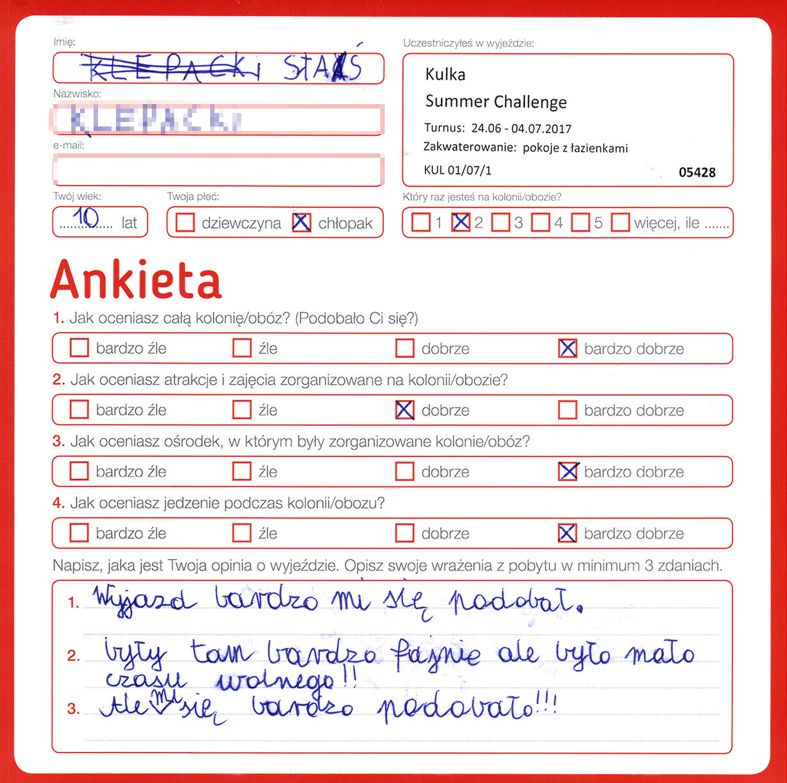 Imię:
Uczestniczyłeś w wyjeździe:
KLEPACKi STAŚ
Kulka
Summer Challenge
Nazwisko:
KLEPACKi
Turnus: 24.06 - 04.07.2017
Zakwaterowanie: pokoje z łazienkami
e-mail:
KUL 01/07/1 05428
Twój wiek: Twoja płeć: Który raz jesteś na kolonii/obozie?
10 lat dziewczyna chłopak 1 2 3 4 5 więcej, ile .......
Ankieta
1. Jak oceniasz całą kolonię/obóz? (Podobało Ci się?)
bardzo źle źle dobrze bardzo dobrze
2. Jak oceniasz atrakcje i zajęcia zorganizowane na kolonii/obozie?
bardzo źle źle dobrze bardzo dobrze
3. Jak oceniasz ośrodek, w którym były zorganizowane kolonie/obóz?
bardzo źle źle dobrze bardzo dobrze
4. Jak oceniasz jedzenie podczas kolonii/obozu?
bardzo źle źle dobrze bardzo dobrze
Napisz, jaka jest Twoja opinia o wyjeździe. Opisz swoje wrażenia z pobytu w minimum 3 zdaniach.
1. Wyjazd bardzo mi się podobał.
2. były tam bardzo fajnie ale było mało
czasu wolnego!!
3. Ale mi się bardzo podobało!!!